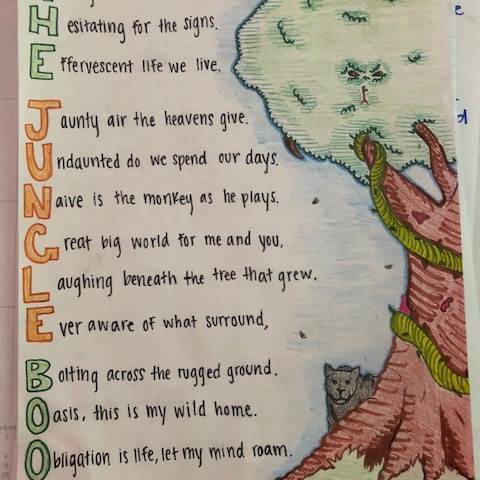 Hesitating for the signs.
Effervescent life we live.
Jaunty air the heavens give.
Undaunted do we spend our days.
Naive is the monkey as he plays.
Great big world for me and you,
Laughing beneath the tree that grew.
Ever aware of what surround,
Bolting across the rugged ground.
Oasis, this is my wild home.
Obligation is life, let my mind roam.